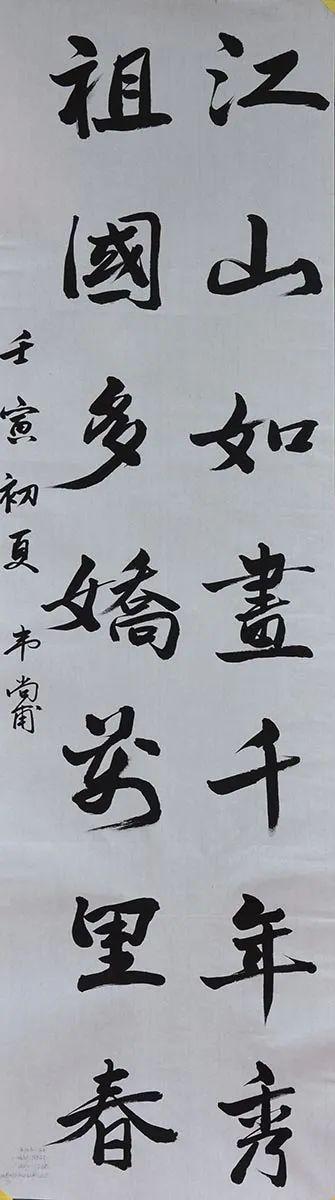 江山如畫千年秀
祖國多嬌萬里春
壬寅初夏 韦尚甫